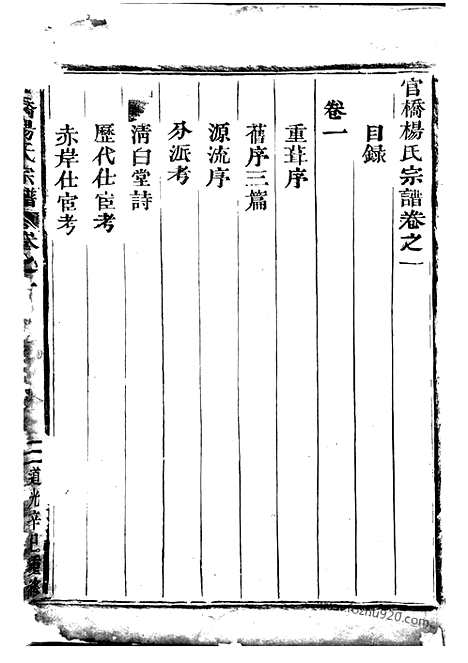 官橋楊氏宗譜卷之一
目錄
卷一
重葺序
舊序三篇
源流序
分派考
清白堂詩
歷代仕宦考
赤岸仕宦考
橋楊氏宗譜
卷之一
道光辛巳重修